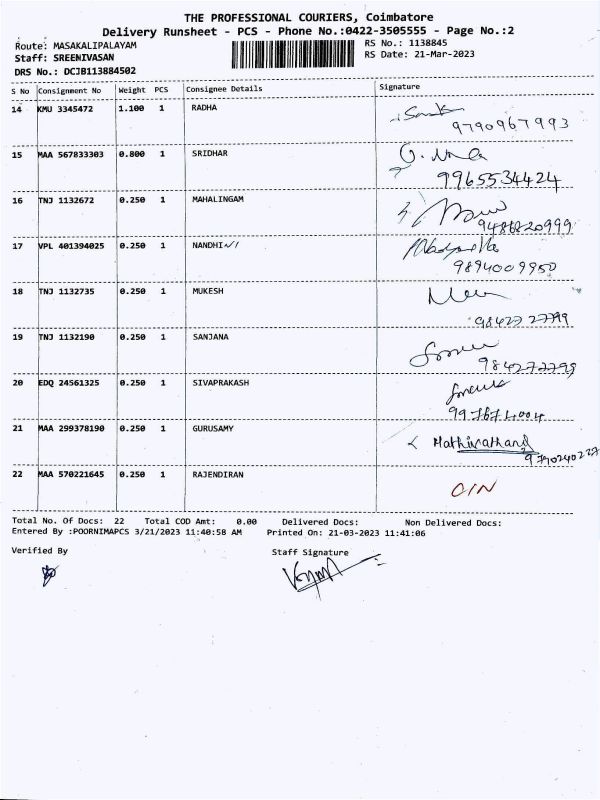 THE PROFESSIONAL COURIERS, Coimbatore
Delivery Runsheet - PCS - Phone No.:0422-3505555 - Page No.:2
Route: MASAKALIPALAYAM
RS No.: 1138845
Staff: SREENIVASAN
RS Date: 21-Mar-2023
DRS No.: DCJB113884502
S No Consignment No Weight PCS Consignee Details Signature
14 KMU 3345472 1.100 1 RADHA
9790967993
15 MAA 567833303 0.800 1 SRIDHAR
9965534424
16 TNJ 1132672 0.250 1 MAHALINGAM
17 VPL 401394025 0.250 1 NANDHI
9894009950
18 TNJ 1132735 0.250 1 MUKESH
19 TNJ 1132190 0.250 1 SANJANA
20 EDQ 24561325 0.250 1 SIVAPRAKASH
21 MAA 299378190 0.250 1 GURUSAMY
9790240227
22 MAA 570221645 0.250 1 RAJENDIRAN
Total No. Of Docs: 22 Total COD Amt: 0.00 Delivered Docs: Non Delivered Docs:
Entered By :POORNIMAPCS 3/21/2023 11:40:58 AM Printed On: 21-03-2023 11:41:06
Verified By Staff Signature